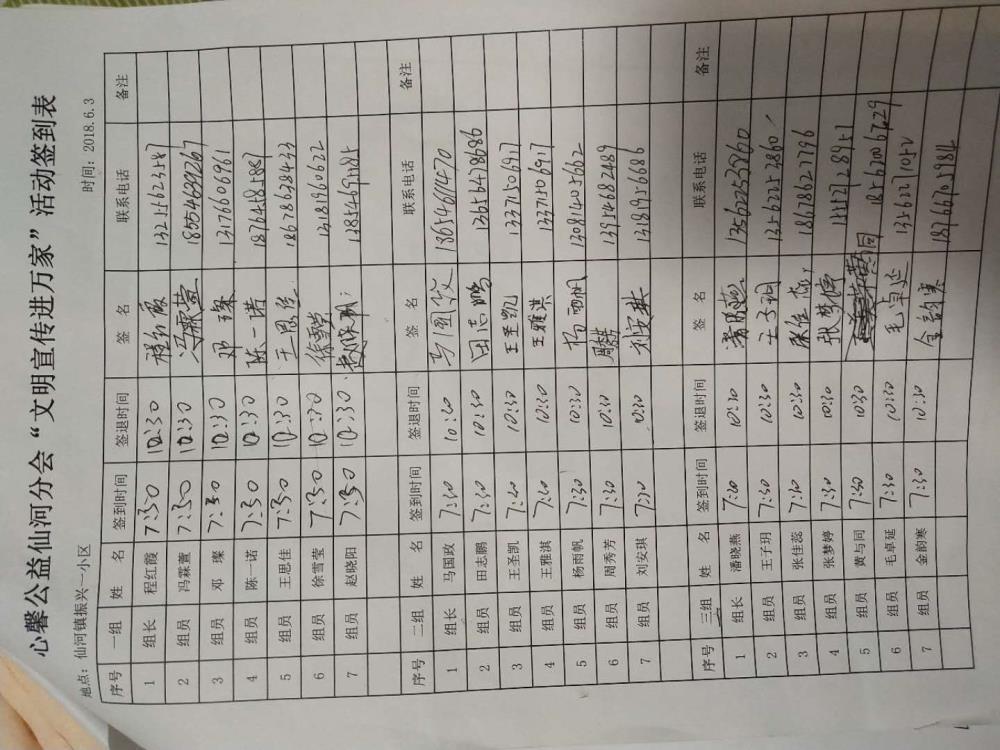 心馨公益仙河分会“文明宣传进万家”活动签到表
地点：仙河镇振兴一小区 时间：2018.6.3
序号 一组 姓 名 签到时间 签退时间 签 名 联系电话 备注
1 组长 程红霞 7:30 10:30 程红霞
2 组员 冯霖萱 7:30 10:30 冯霖萱 18554639267
3 组员 邓 璨 7:30 10:30 邓 璨 13176606961
4 组员 陈一诺 7:30 10:30 陈一诺
5 组员 王思佳 7:30 10:30 王思佳 18678638433
6 组员 徐雪莹 7:30 10:30 徐雪莹 13181960622
7 组员 赵晓阳 7:30 10:30
序号 二组 姓 名 签到时间 签退时间 签 名 联系电话 备注
1 组长 马国政 7:30 10:30 马国政 13654611470
2 组员 田志鹏 7:30 10:30 田志鹏 13656478686
3 组员 王圣凯 7:30 10:30 王圣凯 13371506917
4 组员 王雅淇 7:30 10:30 王雅淇 13371506917
5 组员 杨雨帆 7:30 10:30 杨雨帆 13081405662
6 组员 周秀芳 7:30 10:30 13954682489
7 组员 刘安琪 7:30 10:30 刘安琪 13181956686
序号 三组 姓 名 签到时间 签退时间 签 名 联系电话 备注
1 组长 潘晓燕 7:30 10:30 潘晓燕 13562253960
2 组员 王子玥 7:30 10:30 王子玥
3 组员 张佳蕊 7:30 10:30 18678627796
4 组员 张梦婷 7:30 10:30 张梦婷
5 组员 黄与同 7:30 10:30 同
6 组员 毛卓延 7:30 10:30 毛卓延
7 组员 金韵寒 7:30 10:30 金韵寒 18766705984